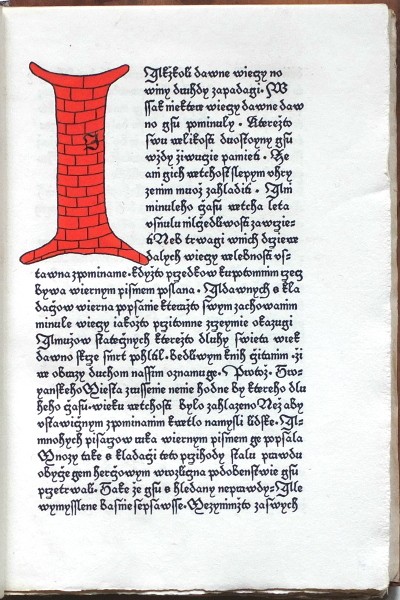 I
Alkžkoli dawne wiegy no
winy druhdy zapadagi. W
ssak niektere wiegy dawne daw
no gsu pominuly. Kterežto
swu welikosti duostoyny gsu
wždy žiwugie pamieti. Že
ani gich wetchost slepym vhry
zenim muož zahladiti. Ani
minuleho čzasu wetcha leta
vsnulu mlčedliwosti zawrzie-
ti Neb trwagi wnich dziewe
dalych wiegy welebnosti vs-
tawna zpominanie. kdyžto przedkow kupotomnim rzecz
bywa wiernym pismem poslana. A dawnych s kla
daczow wierna popsanie kteražto swym zachowanim
minule wiegy iakožto przitomne zgeymie okazugi
A mužow statečnych kterežto dluhy swieta wiek
dawno skrze smrt pohltil. bedliwym knih čzitanim. ži
we obrazy duchom nassim oznamuge. Protož. Tro-
yanskeho Miesta zrussenie nenie hodne by ktereho dlu
heho čzasu wieku wetchosti bylo zahlazeno Než aby
vstawičznym zpominanim kwetlo na mysli lidske. A-
mnohych pisarzow ruka wiernym pismem ge popsala
Mnozy take s kladaczi teto przihody stalu prawdu
obyčzegem herczowym wrozlična podobenstwie gsu
przetrwali. Take že gsu s hledany neprawdy. Ale
wymysslene basnie sepsawsse. Mezynimžto zaswych